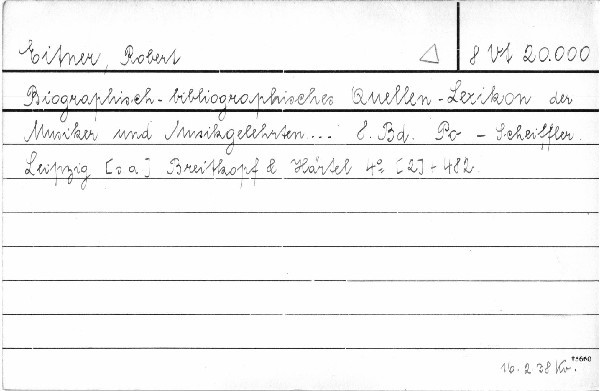 Eitner, Robert △ 8 Vt 20.000
Biographisch-bibliographisches Quellen-Lexikon der
Musiker und Musikgelehrten... 8. Bd. Po - Scheiffler.
Leipzig [s a] Breitkopf & Härtel 4º [2] + 482
16. 2 38 Kv.